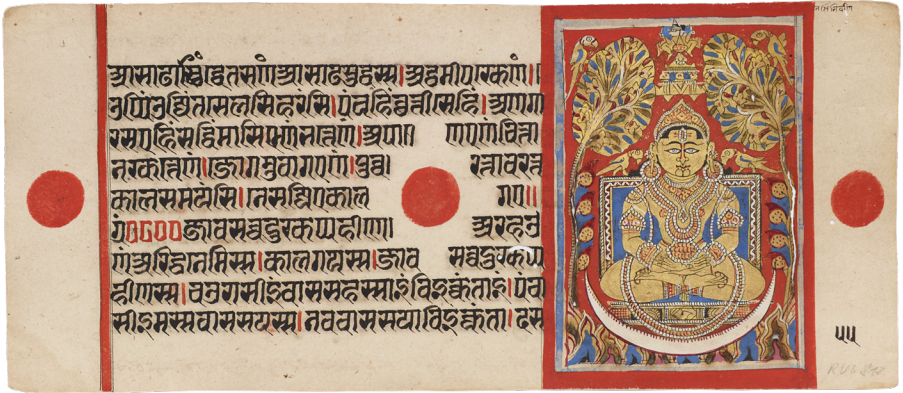 आसाढसुद्धे तस्स णं आसाढसुद्धस्स। अट्ठमीपरकेणं॥
उप्पिं उज्जिंतसेलसिहरंसि। पंचहिं छत्तीसेहिं। अणगा
रसएहिं सद्धिं मासिएणं भत्तेणं। अपाणएणं चित्ता
नरकत्तेणं। जोगमुवागएणं। पुव्वरत्तावरत्त
कालसमयंसि। नेसज्जिए काल गए॥
जाव सव्वदुरकप्पहीणे॥ अरहउ
णं अरिट्ठनेमिस्स। कालगयस्स। जाव सव्वदुरकप्प
हीणस्स। चउरासीइं वाससहस्साइं विइक्कंताइं। पंचा
सीइमस्स वाससयस्स। नववाससयाइं विइक्कंताइं। दस
५५